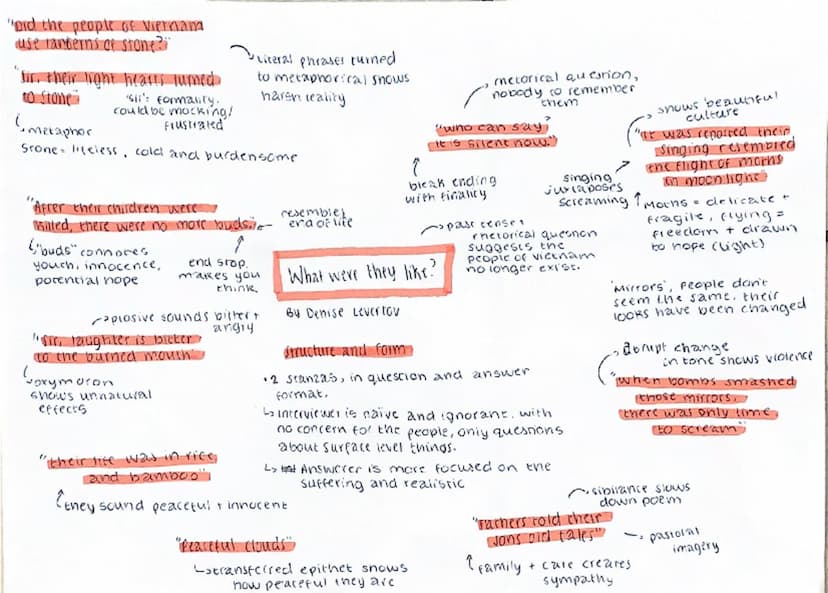 "Did the people of Vietnam
use lanterns of stone?"
↳ Literal phrases turned
to metaphorical shows
harsh reality
"Sir, their light hearts turned
to stone"
'Sir': formality.
could be mocking/
frustrated
↳ metaphor
Stone = lifeless, cold and burdensome
rhetorical question,
nobody to remember
them
"who can say?
it is silent now."
bleak ending
with finality
shows beautiful
culture
"It was reported their
singing resembled
the flight of moths
in moonlight"
singing
juxtaposes
screaming
Moths = delicate +
fragile, flying =
freedom + drawn
to hope (light)
"After their children were
killed, there were no more buds."
resembles
end of life
↳ "buds" connotes
youth, innocence,
potential hope
end stop,
makes you
think.
What were they like?
By Denise Levertov
past tense +
rhetorical question
suggests the
people of vietnam
no longer exist.
'Mirrors', people don't
seem the same. their
looks have been changed
plosive sounds bitter +
angry
"Sir, laughter is bitter
to the burned mouth"
oxymoron
shows unnatural
effects
structure and form
• 2 stanzas, in question and answer
format.
↳ Interviewer is naïve and ignorant. with
no concern for the people, only questions
about surface level things.
↳ Answerer is more focused on the
suffering and realistic
abrupt change
in tone shows violence
"when bombs smashed
those mirrors,
there was only time
to scream"
"their life was in rice
and bamboo"
they sound peaceful + innocent
"Peaceful clouds"
↳ transferred epithet shows
how peaceful they are
sibilance slows
down poem
"Fathers told their
sons old tales"
pastoral
imagery
family + care creates
sympathy